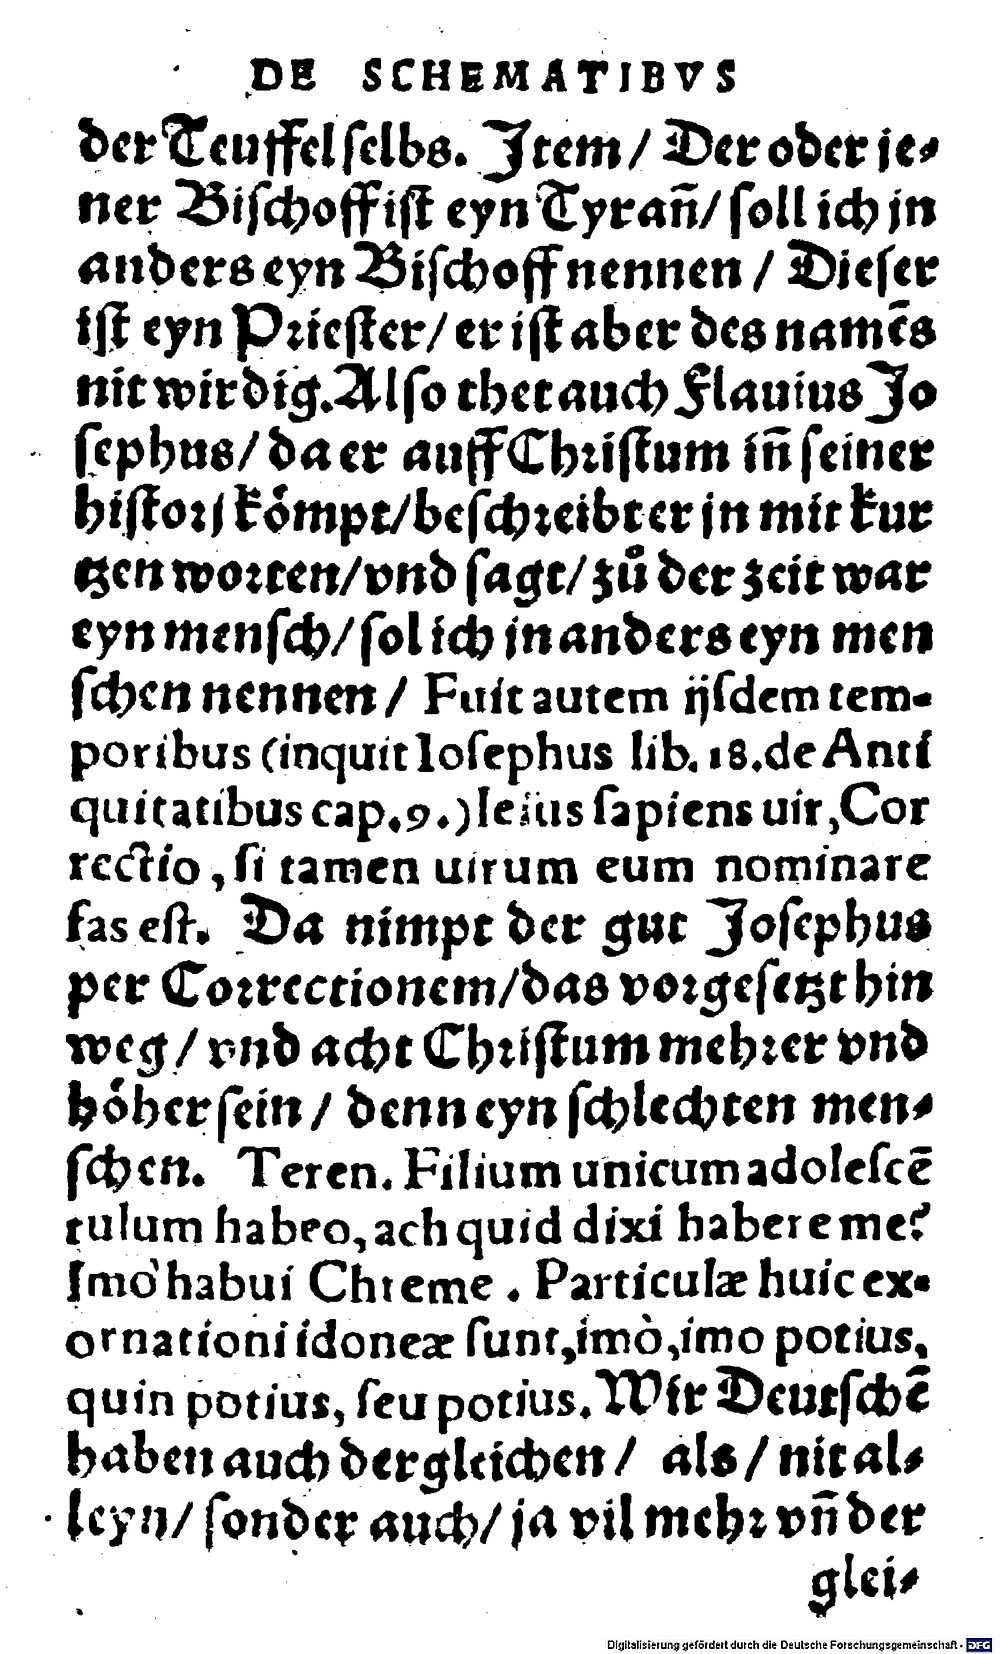 DE SCHEMATIBVS
der Teuffel ſelbs. Jtem / Der oder je⸗
ner Biſchoff iſt eyn Tyrañ / ſoll ich jn
anders eyn Biſchoff nennen / Dieſer
iſt eyn Prieſter / er iſt aber des namẽs
nit wirdig. Alſo thet auch Flauius Jo
ſephus / da er auff Chriſtum iñ ſeiner
hiſtorj koͤmpt / beſchreibt er jn mit kur
tzen worten / vnd ſagt / zuͦ der zeit war
eyn menſch / ſol ich jn anders eyn men
ſchen nennen / Fuit autem ijſdem tem-
poribus (inquit Ioſephus lib. 18. de Anti
quitatibus cap. 9.) Ieſus ſapiens uir, Cor
rectio, ſi tamen uirum eum nominare
fas eſt. Da nimpt der gut Joſephus
per Correctionem / das vorgeſetzt hin
weg / vnd acht Chriſtum mehrer vnd
hoͤher ſein / denn eyn ſchlechten men⸗
ſchen. Teren. Filium unicum adoleſcẽ
tulum habeo, ach quid dixi habere me?
Imò habui Chreme. Particulæ huic ex-
ornationi idoneæ ſunt, imò, imo potius,
quin potius, ſeu potius. Wir Deutſchẽ
haben auch dergleichen / als / nit al⸗
leyn / ſonder auch / ja vil mehr vñ der
glei⸗
Digitalisierung gefördert durch die Deutsche Forschungsgemeinschaft - DFG